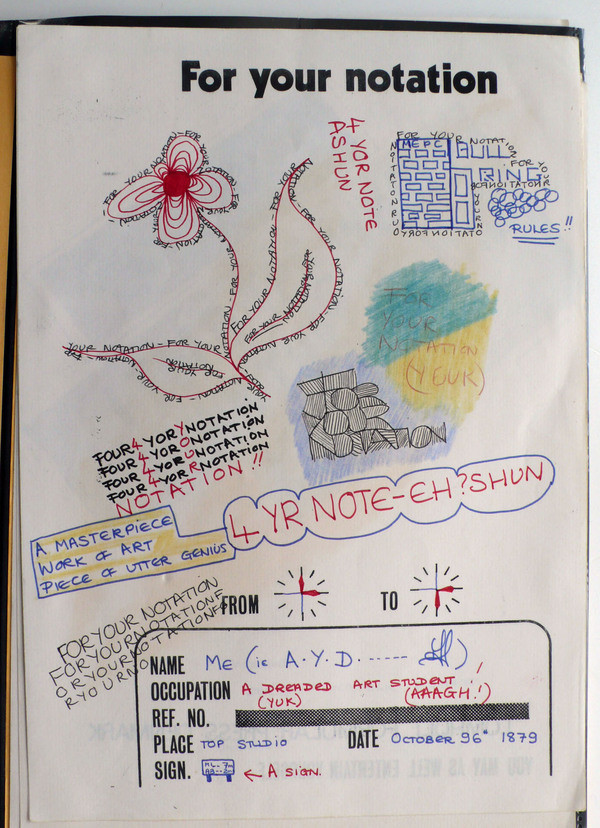 For your notation
4 YOR NOTE
ASHUN
FOR YOUR NOTATION
MEPC
BULL
RING
FOR YOUR NOTATION
RULES!!
FOR YOUR NOTATION - FOR YOUR NOTATION
FOR YOUR NOTATION
YOUR NOTATION - FOR YOUR
FOR
YOUR
NOTATION
(YEUK)
FOUR4YORYNOTATION
FOUR4YORONOTATION
FOUR4YORUNOTATION
FOUR4YORRNOTATION
NOTATION!!
4 YR NOTE-EH?SHUN
A MASTERPIECE
WORK OF ART
PIECE OF UTTER GENIUS
FOR YOUR NOTATION
FOR YOUR NOTATION F
OR YOUR NOTATION FO
R YOUR NO
FROM TO
NAME ME (ie A.Y.D. ------ )
OCCUPATION A DREADED ART STUDENT!
(YUK) (AAAGH!)
REF. NO.
PLACE TOP STUDIO DATE OCTOBER 96" 1879
SIGN. ← A SIGN.